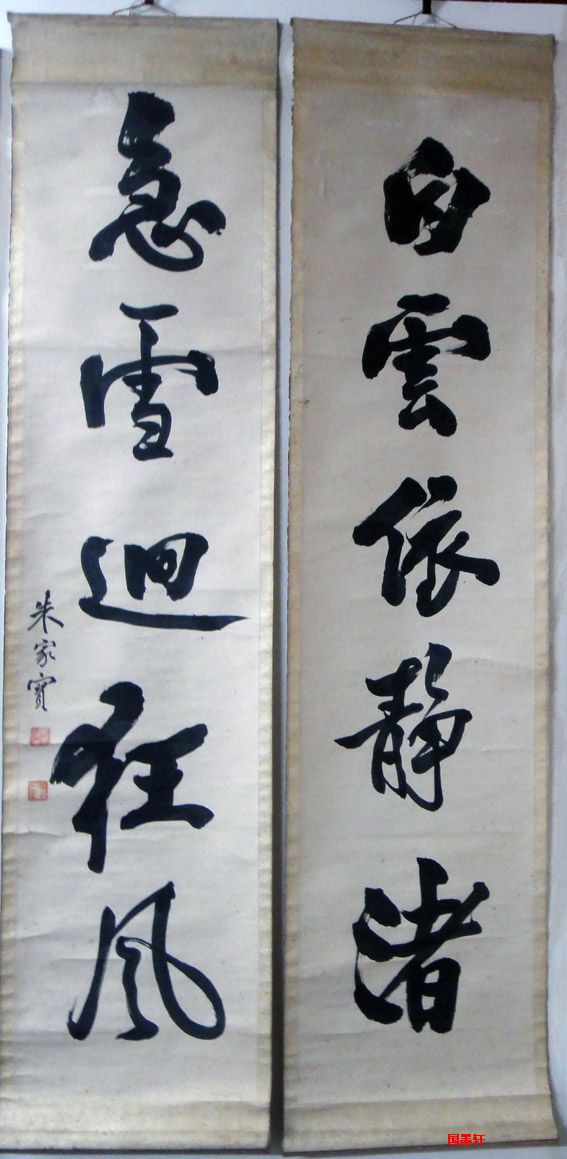 白雲依靜渚
急雪迴狂风
朱家寶
国美轩